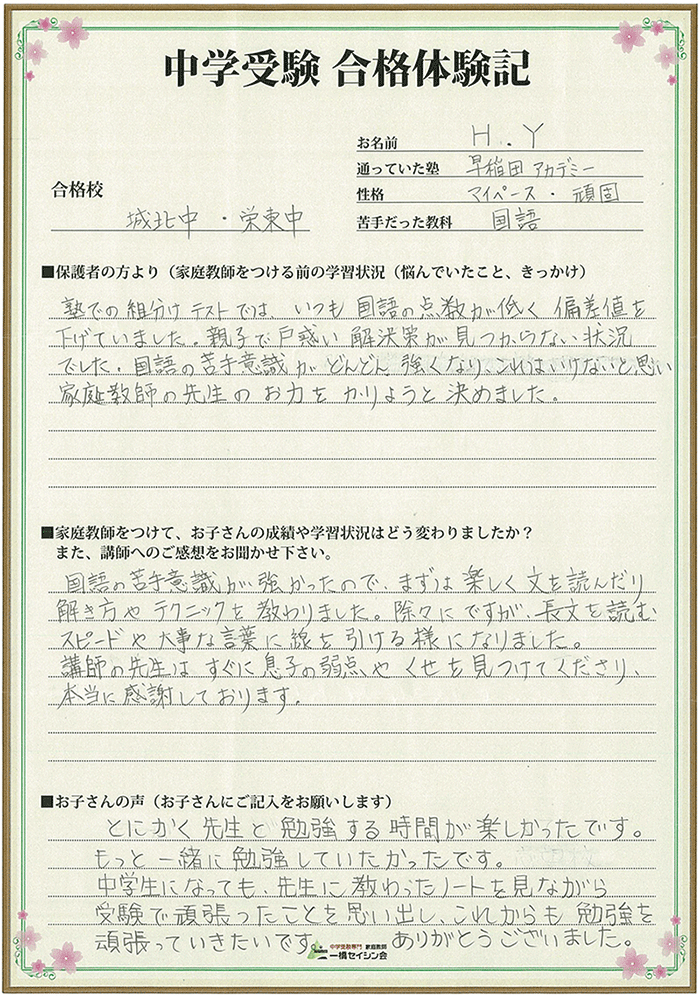 中学受験 合格体験記
お名前 H.Y
通っていた塾 早稲田アカデミー
合格校
性格 マイペース・頑固
城北中・栄東中
苦手だった教科 国語
■保護者の方より（家庭教師をつける前の学習状況（悩んでいたこと、きっかけ）
塾での組分けテストでは、いつも国語の点数が低く偏差値を
下げていました。親子で戸惑い解決策が見つからない状況
でした。国語の苦手意識がどんどん強くなり、これはいけないと思い
家庭教師の先生のお力をかりようと決めました。
■家庭教師をつけて、お子さんの成績や学習状況はどう変わりましたか？
また、講師へのご感想をお聞かせ下さい。
国語の苦手意識が強かったので、まずは楽しく文を読んだり
解き方やテクニックを教わりました。除々にですが、長文を読む
スピードや大事な言葉に線を引ける様になりました。
講師の先生はすぐに息子の弱点やくせを見つけてくださり、
本当に感謝しております。
■お子さんの声（お子さんにご記入をお願いします）
とにかく先生と勉強する時間が楽しかったです。
もっと一緒に勉強していたかったです。
中学生になっても、先生に教わったノートを見ながら
受験で頑張ったことを思い出し、これからも勉強を
頑張っていきたいです。 ありがとうございました。
中学受験専門 家庭教師
一橋セイシン会